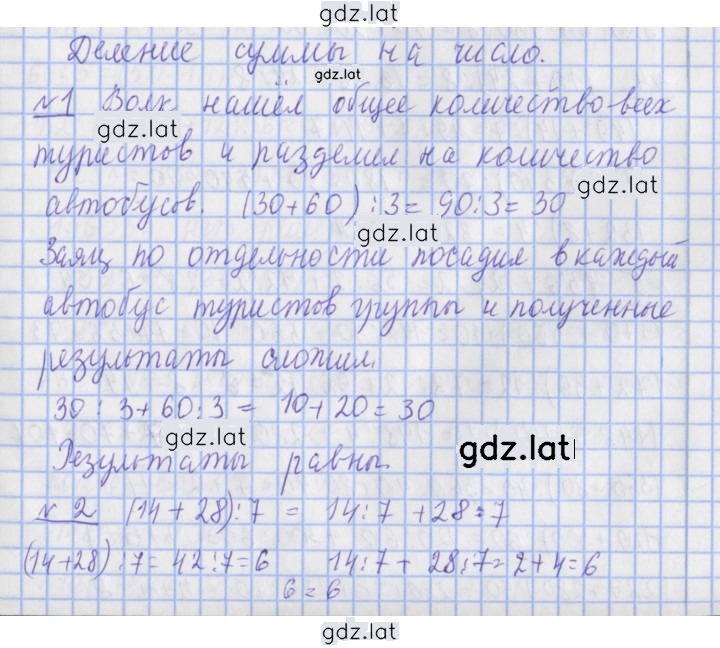 gdz.lat
Деление суммы на число.
gdz.lat
№1 Волк нашёл общее количество всех
gdz.lat
туристов и разделил на количество
gdz.lat
автобусов. (30+60):3=90:3=30
gdz.lat
Заяц по отдельности посадил в каждый
автобус туристов группы и полученные
результаты сложил.
30:3+60:3= 10+20=30
gdz.lat
gdz.lat
Результаты равны.
№2 (14+28):7 = 14:7 +28:7
(14+28):7=42:7=6 14:7+ 28:7=2+4=6
6=6
gdz.lat